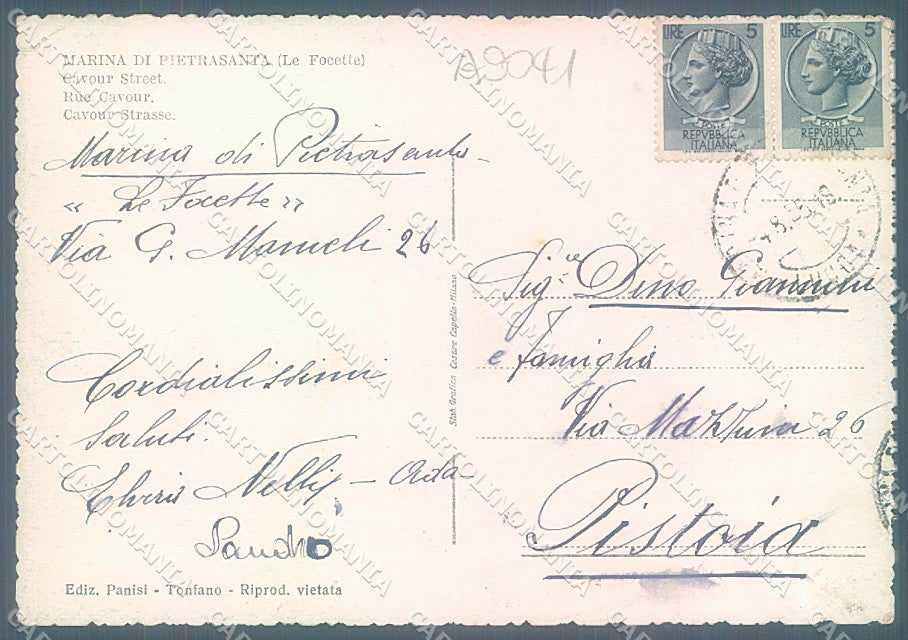 MARINA DI PIETRASANTA (Le Focette)
Cavour Street.
Rue Cavour.
Cavour Strasse.
Marina di Pietrasanta
"Le Focette"
Via G. Mameli 26
Cordialissimi
saluti.
Nelly - Ada
Sandro
Ediz. Panisi - Tonfano - Riprod. vietata
Stab. Grafico Cesare Capello - Milano
A9041
LIRE 5
POSTE
REPVBBLICA
ITALIANA
LIRE 5
POSTE
REPVBBLICA
ITALIANA
Sig. Dino Giannini
e famiglia
Via Mazzini 26
Pistoia
CARTOLINOMANIA